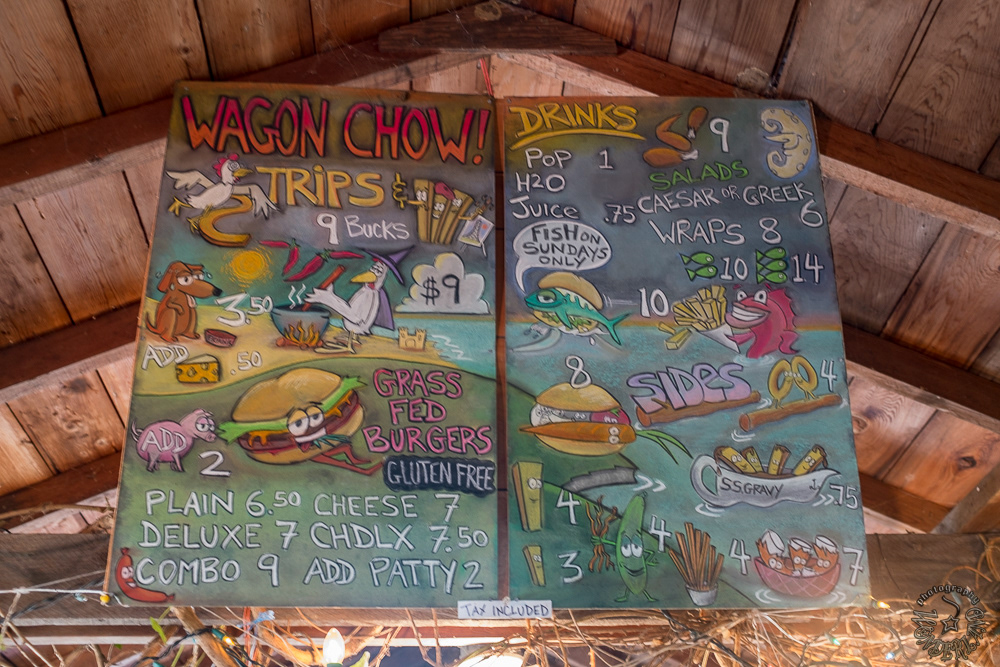 WAGON CHOW!
TRIPS &
9 BUCKS
$9
3.50
ADD .50
GRASS
FED
BURGERS
GLUTEN FREE
ADD
2
PLAIN 6.50 CHEESE 7
DELUXE 7 CHDLX 7.50
COMBO 9 ADD PATTY 2
DRINKS
POP 1
H2O
JUICE .75
9
SALADS
CAESAR OR GREEK
6
WRAPS 8
10 14
FISH ON
SUNDAYS
ONLY
10
8
SIDES
4
S.S. GRAVY
.75
4
3
4
4
7
TAX INCLUDED
photography